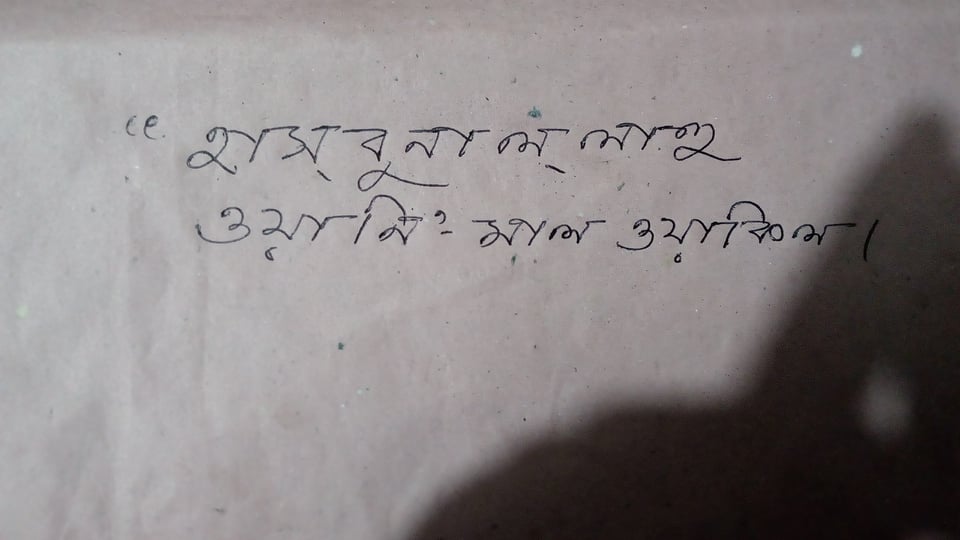 ৫। হাস্‌বুনাল্‌লাহু
ওয়ানি'-মাল ওয়াকিল।